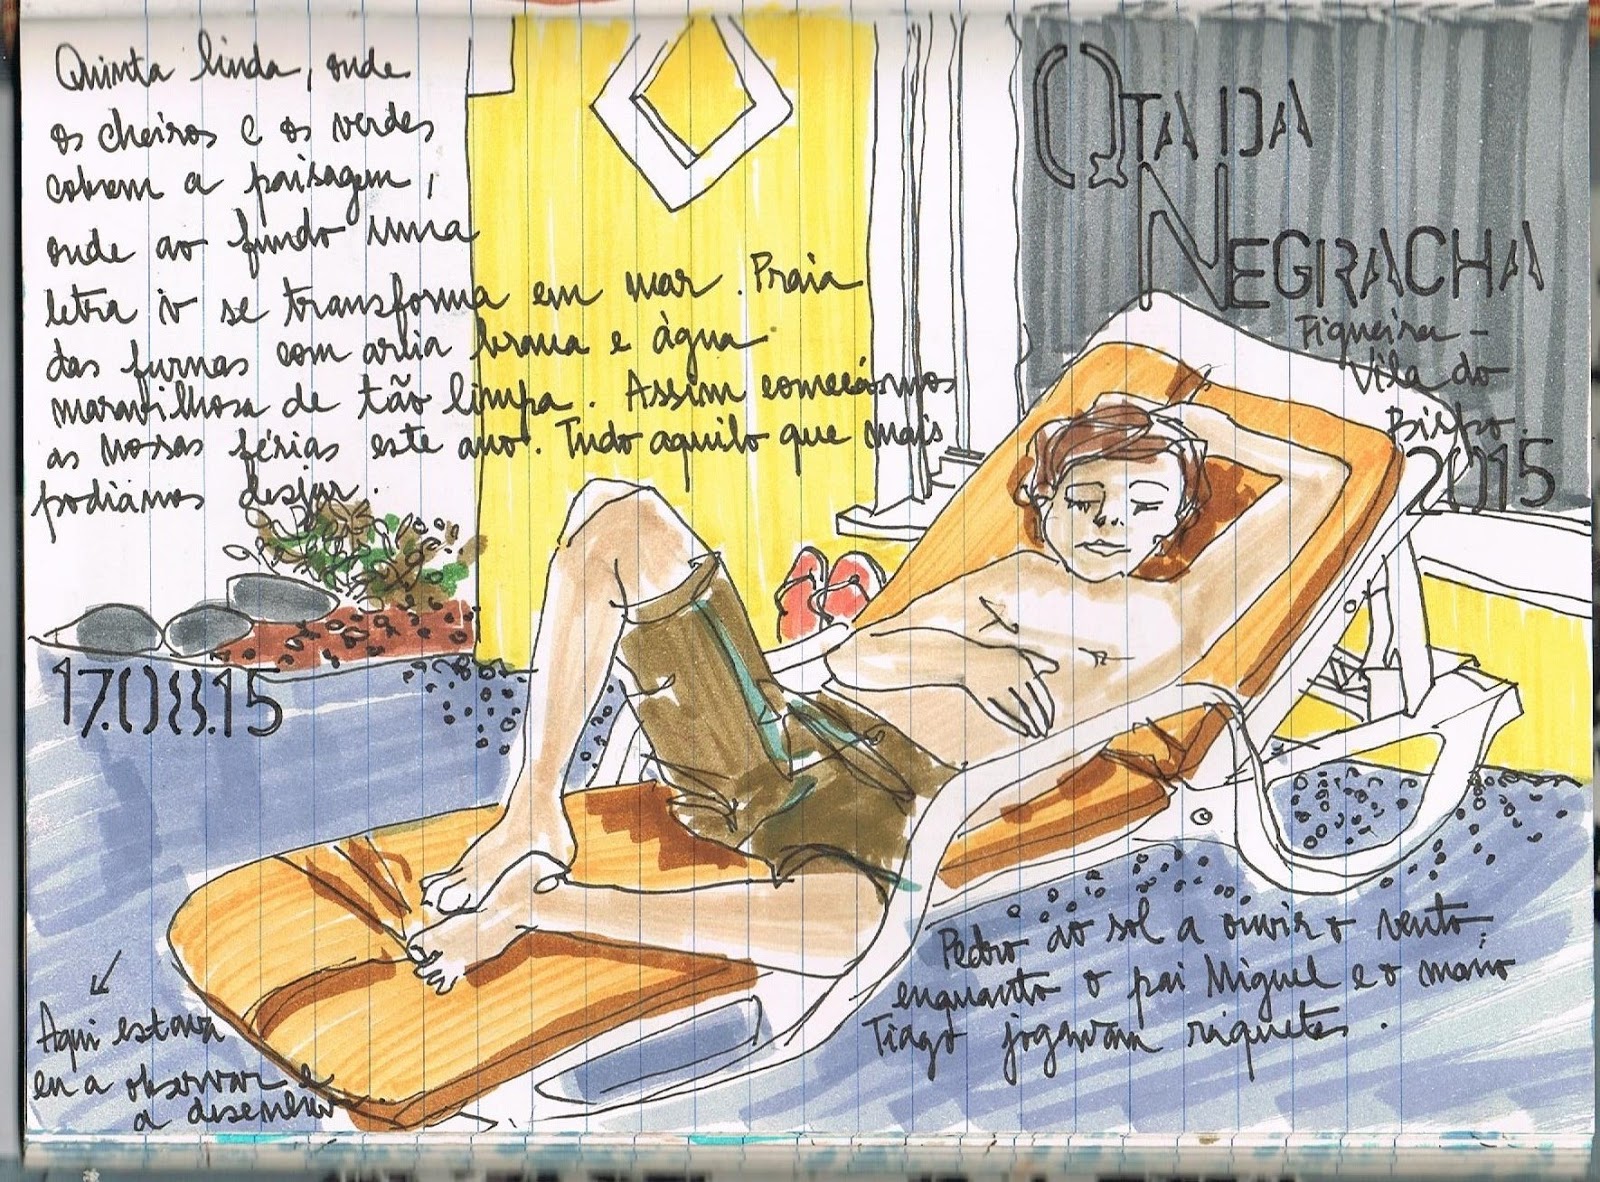 Quinta linda, onde
os cheiros e os verdes
cobrem a paisagem,
onde ao fundo uma
letra v se transforma em mar. Praia
das furnas com areia branca e água
maravilhosa de tão limpa. Assim começámos
as nossas férias este ano. Tudo aquilo que mais
podiámos desejar.
17.08.15
Aqui estava
eu a observar e
a desenhar
QTA DA
NEGRACHA
Figueira -
Vila do
Bispo.
2015
Pedro ao sol a ouvir o vento,
enquanto o pai Miguel e o mano
Tiago jogavam riquetes.